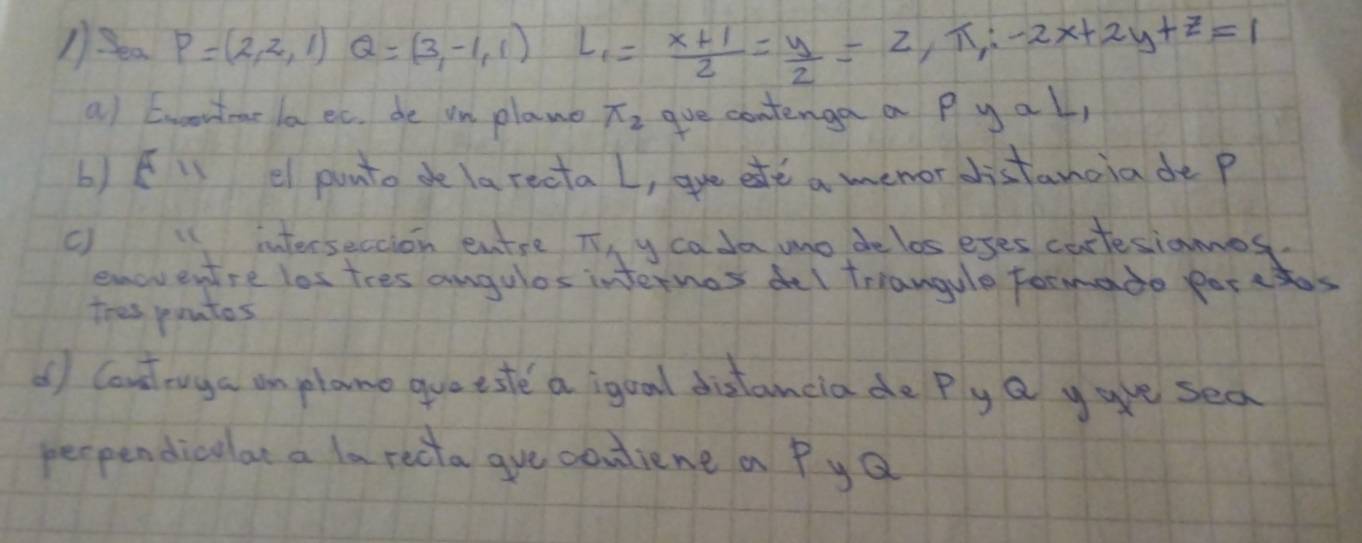 1) Sea P=(2,2,1) Q=(3,-1,1) L₁= x+1/2 = y/2 = z, π₁: -2x+2y+z=1
a) Encontrar la ec. de un plano π₂ que contenga a P y a L₁
b) E " el punto de la recta L₁ que esté a menor distancia de P
c) " intersección entre π₁ y cada uno de los ejes cartesianos.
encuentre los tres angulos internos del triangulo formado por estos
tres puntos
d) Construya un plano que esté a igual distancia de P y Q y que sea
perpendicular a la recta que contiene a P y Q